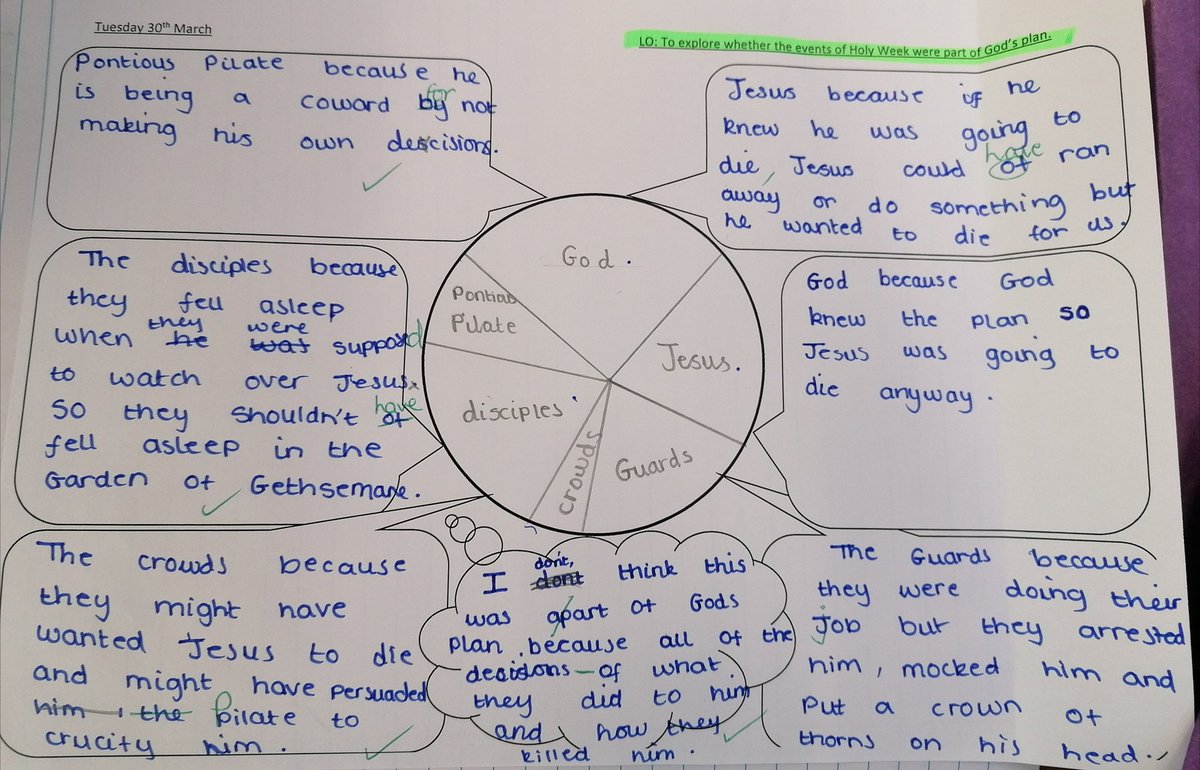 Tuesday 30th March
LO: To explore whether the events of Holy Week were part of God's plan.
Pontious Pilate because he
is being a coward by for not
making his own descisions.
Jesus because if he
knew he was going to
die, Jesus could of have ran
away or do something but
he wanted to die for us.
The disciples because
they fell asleep
when he they was were supposed
to watch over Jesus
so they shouldn't of have
fell asleep in the
Garden of Gethsemane.
God because God
knew the plan so
Jesus was going to
die anyway.
God.
Pontious
Pilate
Jesus.
disciples
crowds
Guards
The crowds because
they might have
wanted Jesus to die
and might have persuaded
him, the Pilate to
crucify him.
I dont don't, think this
was apart of Gods
plan, because all of the
decisions of what
they did to him
and how they
killed him.
The Guards because
they were doing their
job but they arrested
him, mocked him and
put a crown of
thorns on his head.